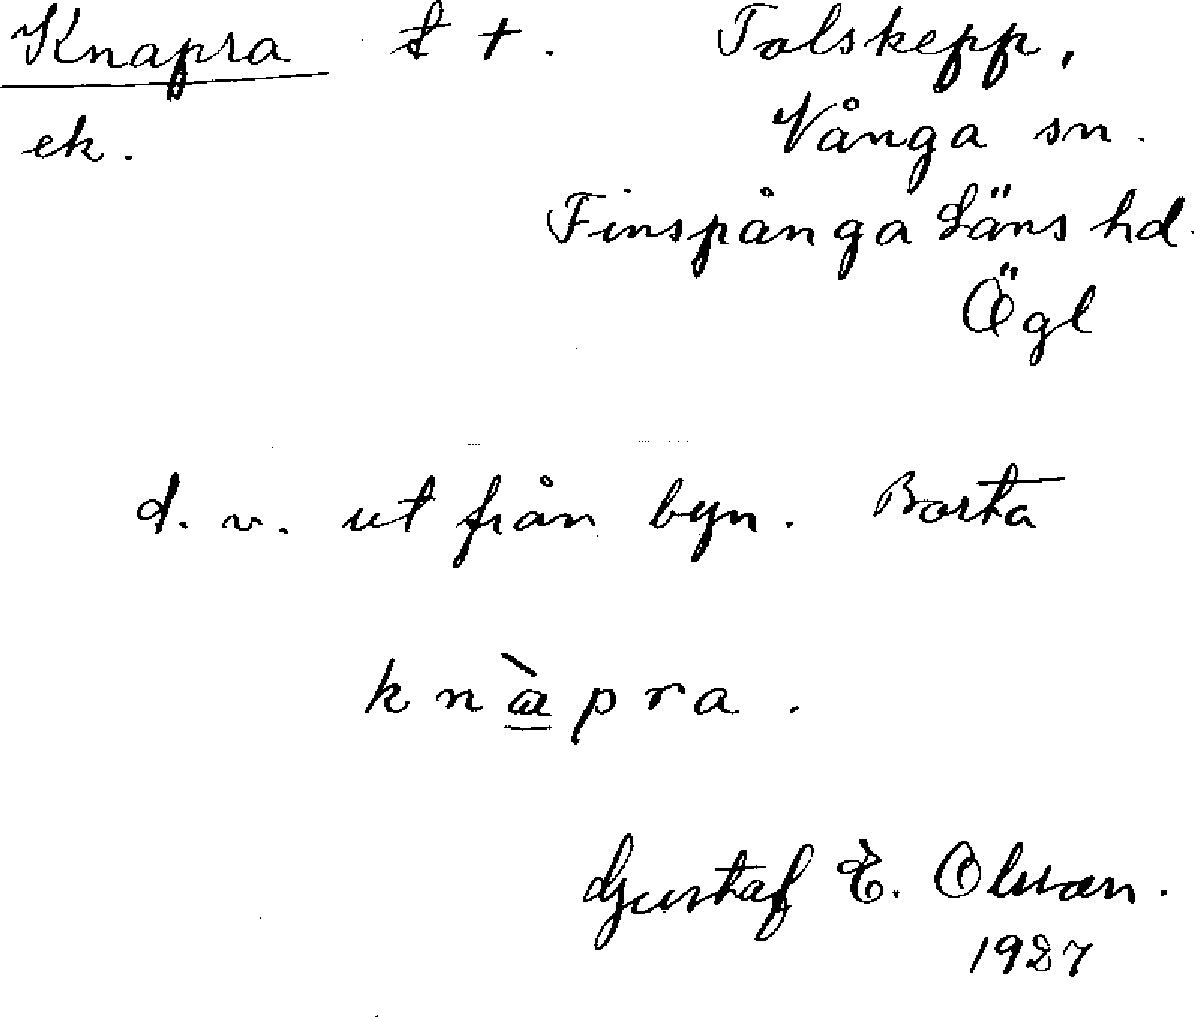 Knapra t +. Tolskepp,
ek. Vånga sn.
Finspånga Läns hd.
Ögl
d. v. ut från byn. Borta
knàpra.
Gustaf E. Olsson.
1927